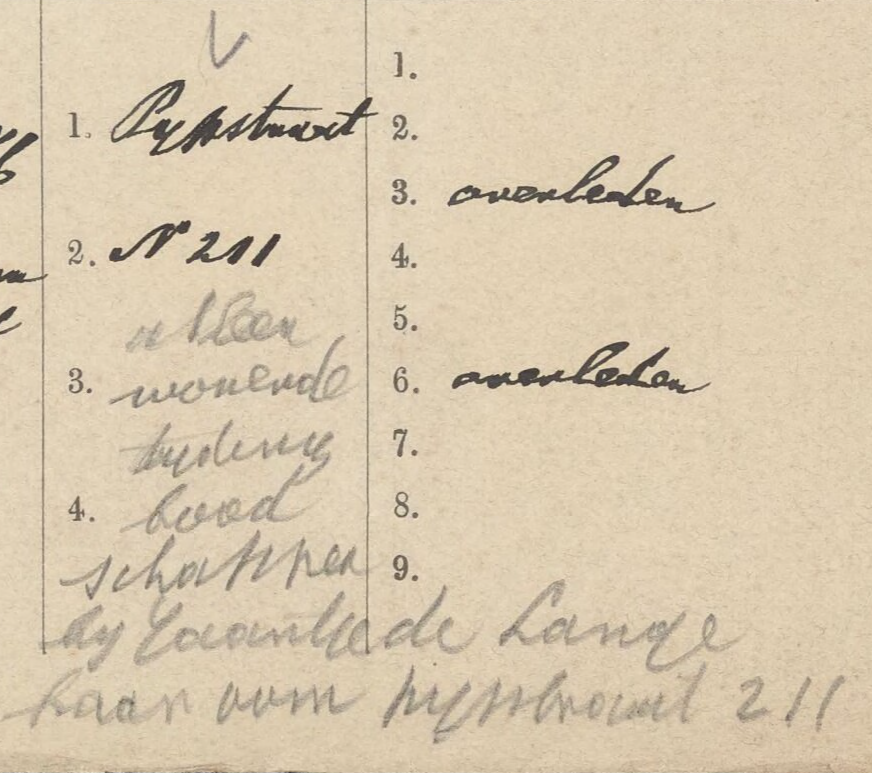 1. Pypstraat
2. N 211
alleen
3. wonende
tyding
4. bood
schappen
by Jaantje de Lange
haar oom pypstraat 211
1.
2.
3. overleden
4.
5.
6. overleden
7.
8.
9.